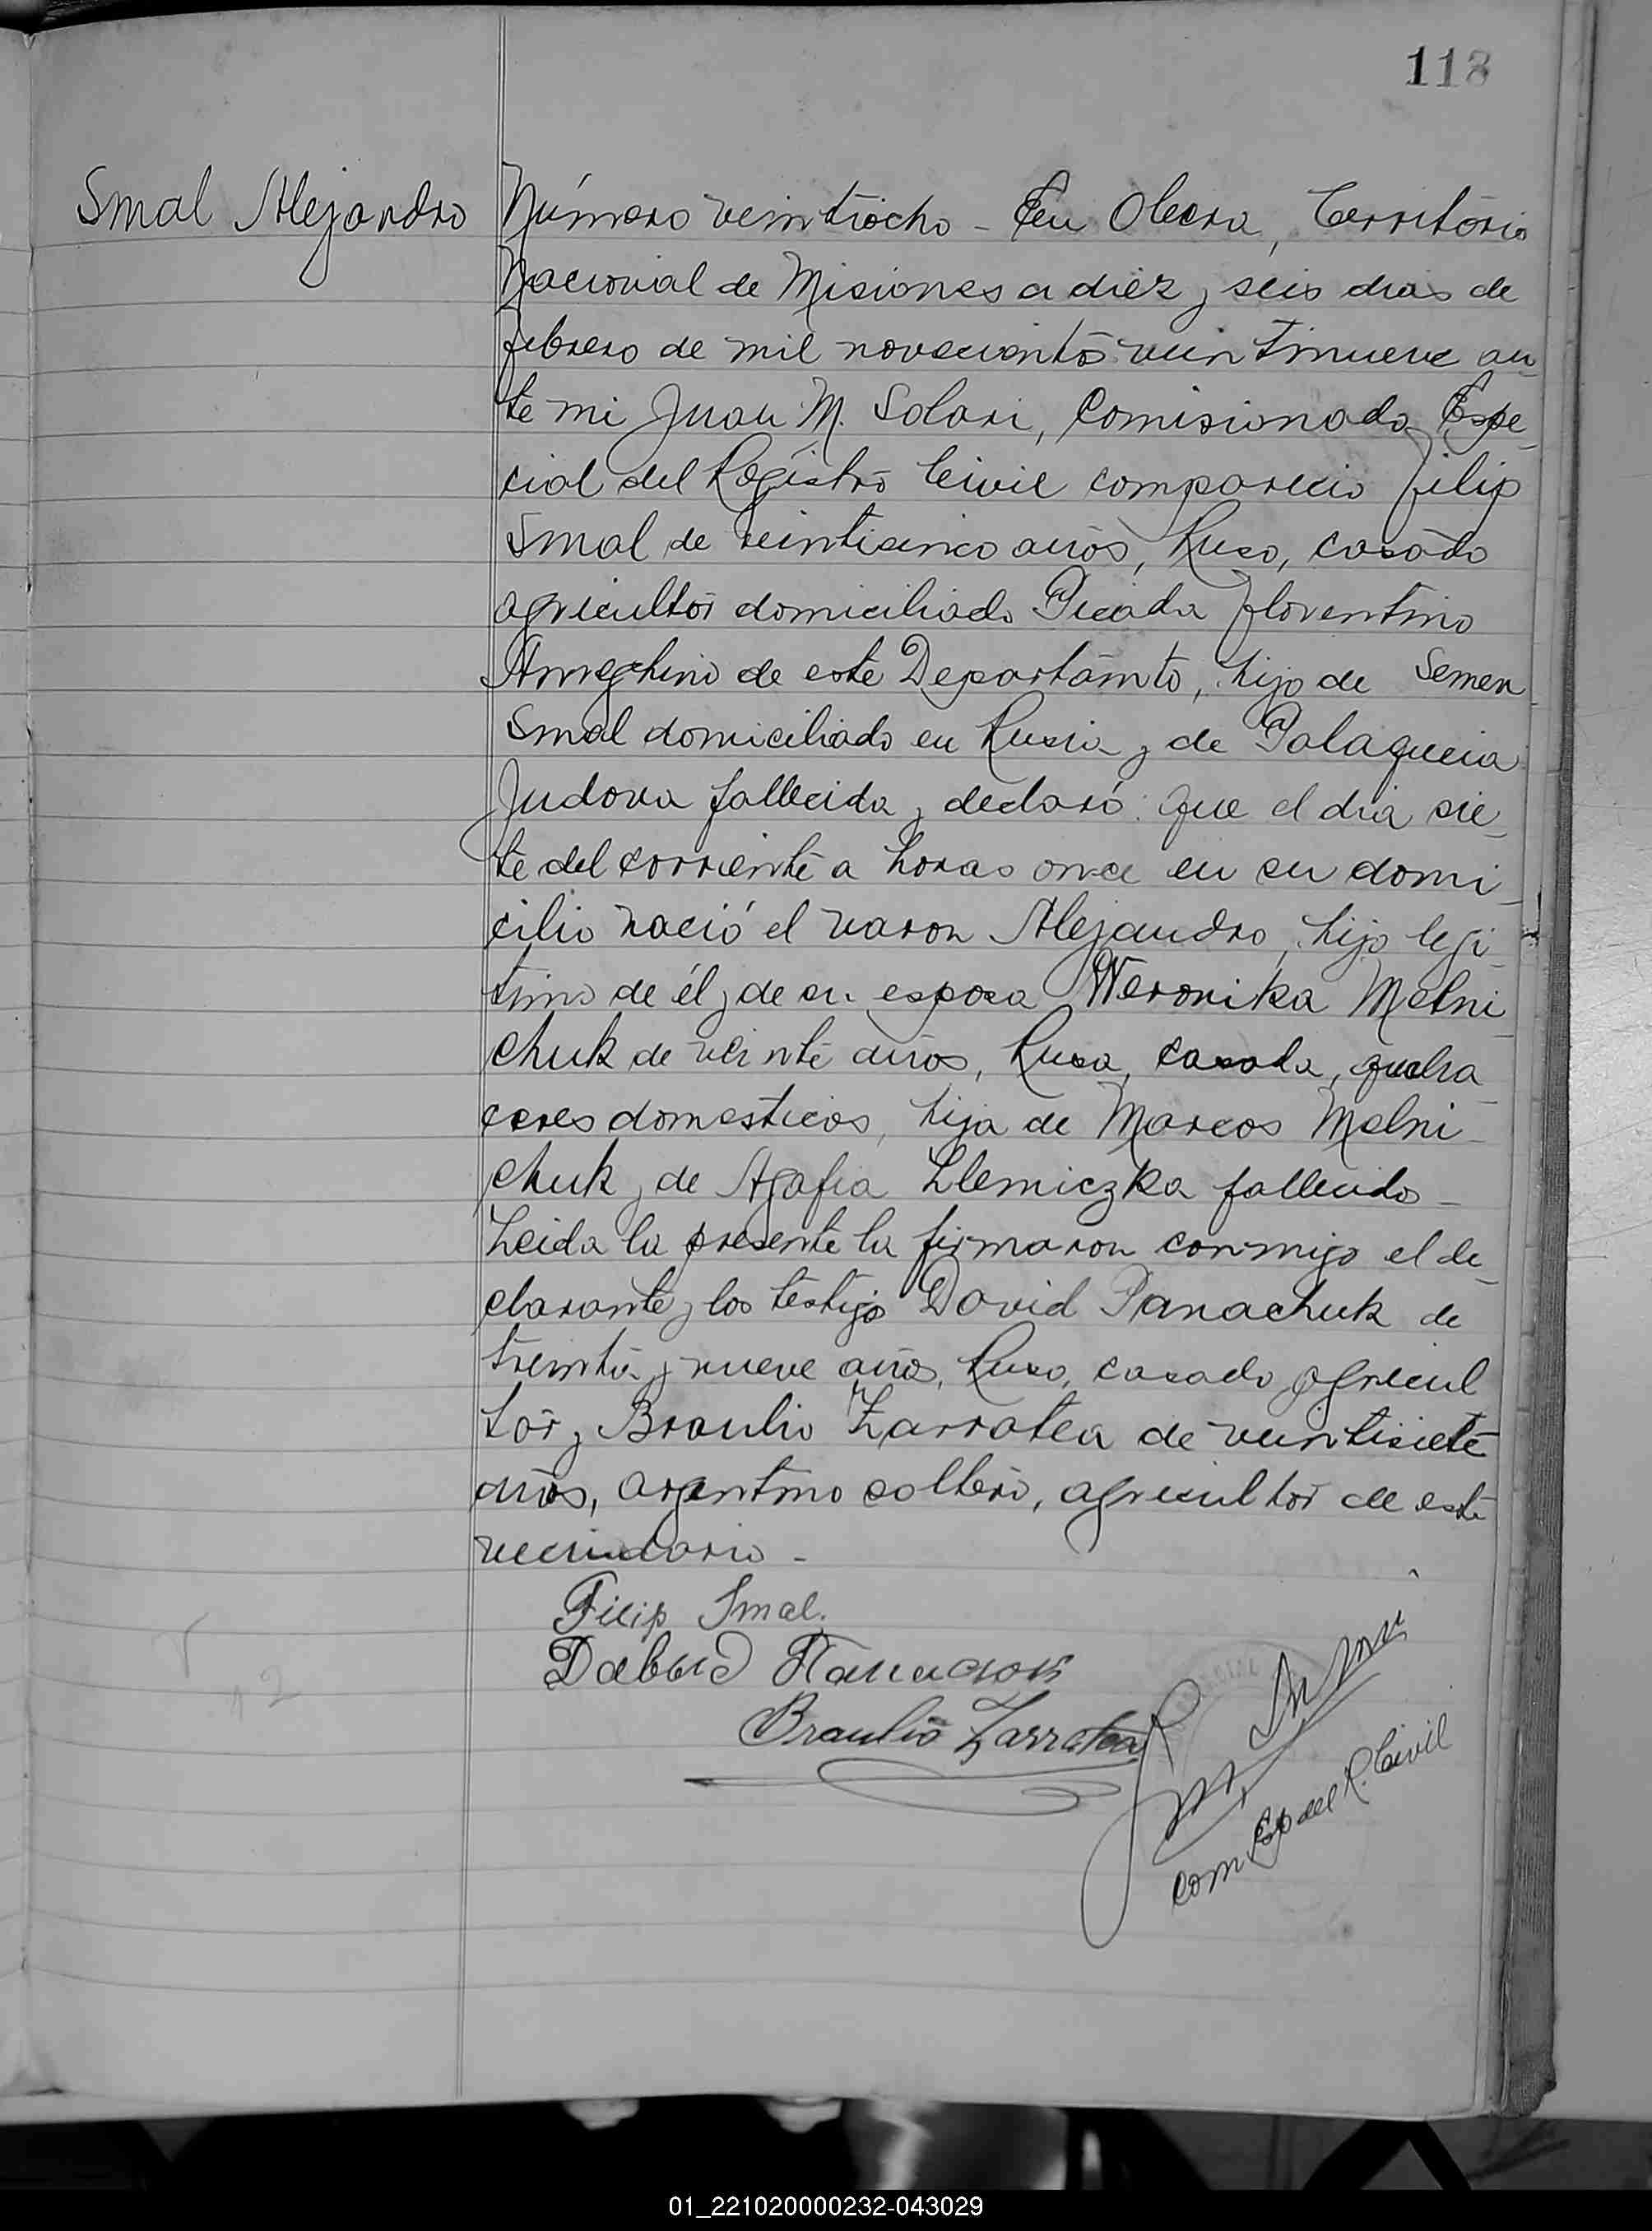 118
Smal Alejandro
Número veintiocho - En Obera, Territorio
Nacional de Misiones a diez y seis dias de
febrero de mil novecientos veintinueve an-
te mi Juan M. Solari, Comisionado Espe-
cial del Registro Civil comparecio Filip
Smal de veinticinco años, Ruso, casado
agricultor domiciliado Picada Florentino
Ameghino de este Departamto, hijo de Semen
Smal domiciliado en Rusia y de Palagueia
Judova fallecida y declaró: que el dia sie-
te del corriente a horas once en su domi-
cilio nació el varon Alejandro, hijo legi-
timo de él y de su esposa Weronika Melni
chuk de veinte años, Rusa, casada, queha-
ceres domesticos, hija de Marcos Melni-
chuk y de Agafia fallecidos -
Leida la presente la firmaron conmigo el de-
clarante y los testigo David Panachuk de
treinta y nueve años, Ruso, casado agricul
tor y Braulio Zarratea de veintisiete
años, argentino soltero, agricultor de este
vecindario -
Filip Smal.
Давид
Braulio Zarratea
Com Esp del R. Civil
01_221020000232-043029